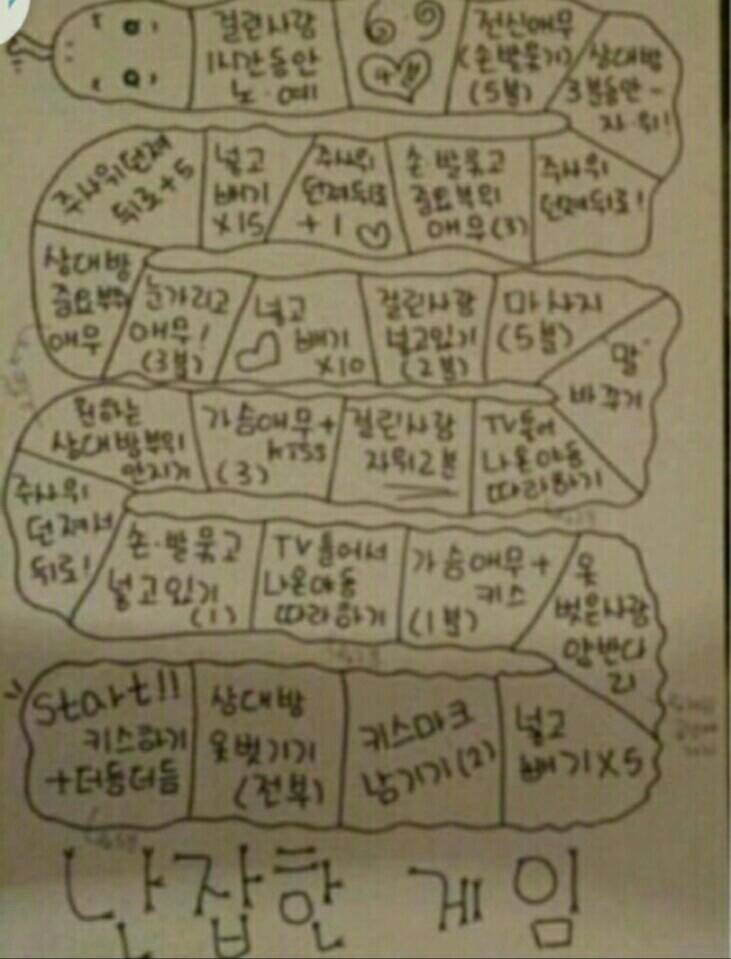 걸린사람
1시간동안
노·예
69
전신애무
(손발묶기)
(5분)
상대방
3분동안
자·위!
주사위던져
뒤로+5
넣고
빼기
X15
주사위
던져뒤로
+1
손·발묶고
중요부위
애무(3)
주사위
던져뒤로!
상대방
중요부위
애무
눈가리고
애무!
(3분)
넣고
빼기
X10
걸린사람
넣고있기
(2분)
마사지
(5분)
"말"
바꾸기
원하는
상대방부위
만지기
가슴애무+
kiss
(3)
걸린사람
자위2분
TV틀어
나온야동
따라하기
주사위
던져서
뒤로!
손·발묶고
넣고있기
(1)
TV틀어서
나온야동
따라하기
가슴애무+
키스
(1분)
옷
벗은사람
Start!!
키스하기
+더듬더듬
상대방
옷벗기기
(전부)
키스마크
남기기(2)
넣고
빼기X5
난잡한 게임